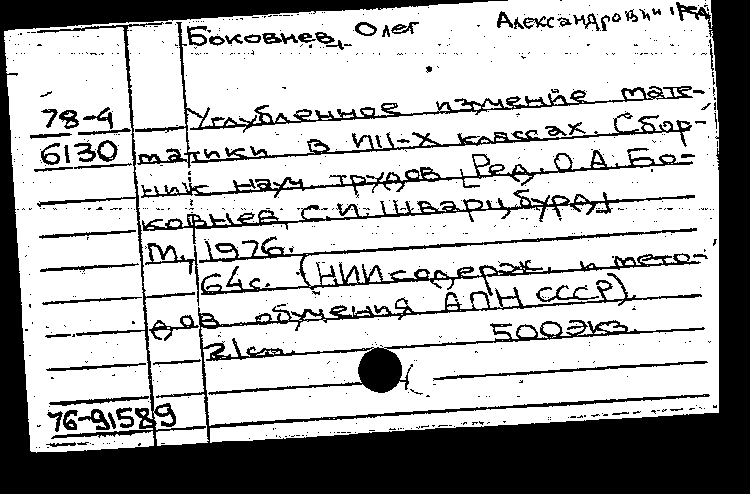 Боковнев, Олег Александрович, ред.
78-4 Углубленное изучение мате-
6130 матики в VIII-X классах. Сбор-
ник науч. трудов [Ред. О.А. Бо-
ковнев, С.И. Шварцбурд]
М., 1976.
64с. (НИИ содерж. и мето-
дов обучения АПН СССР).
21см. 500экз.
76-91589